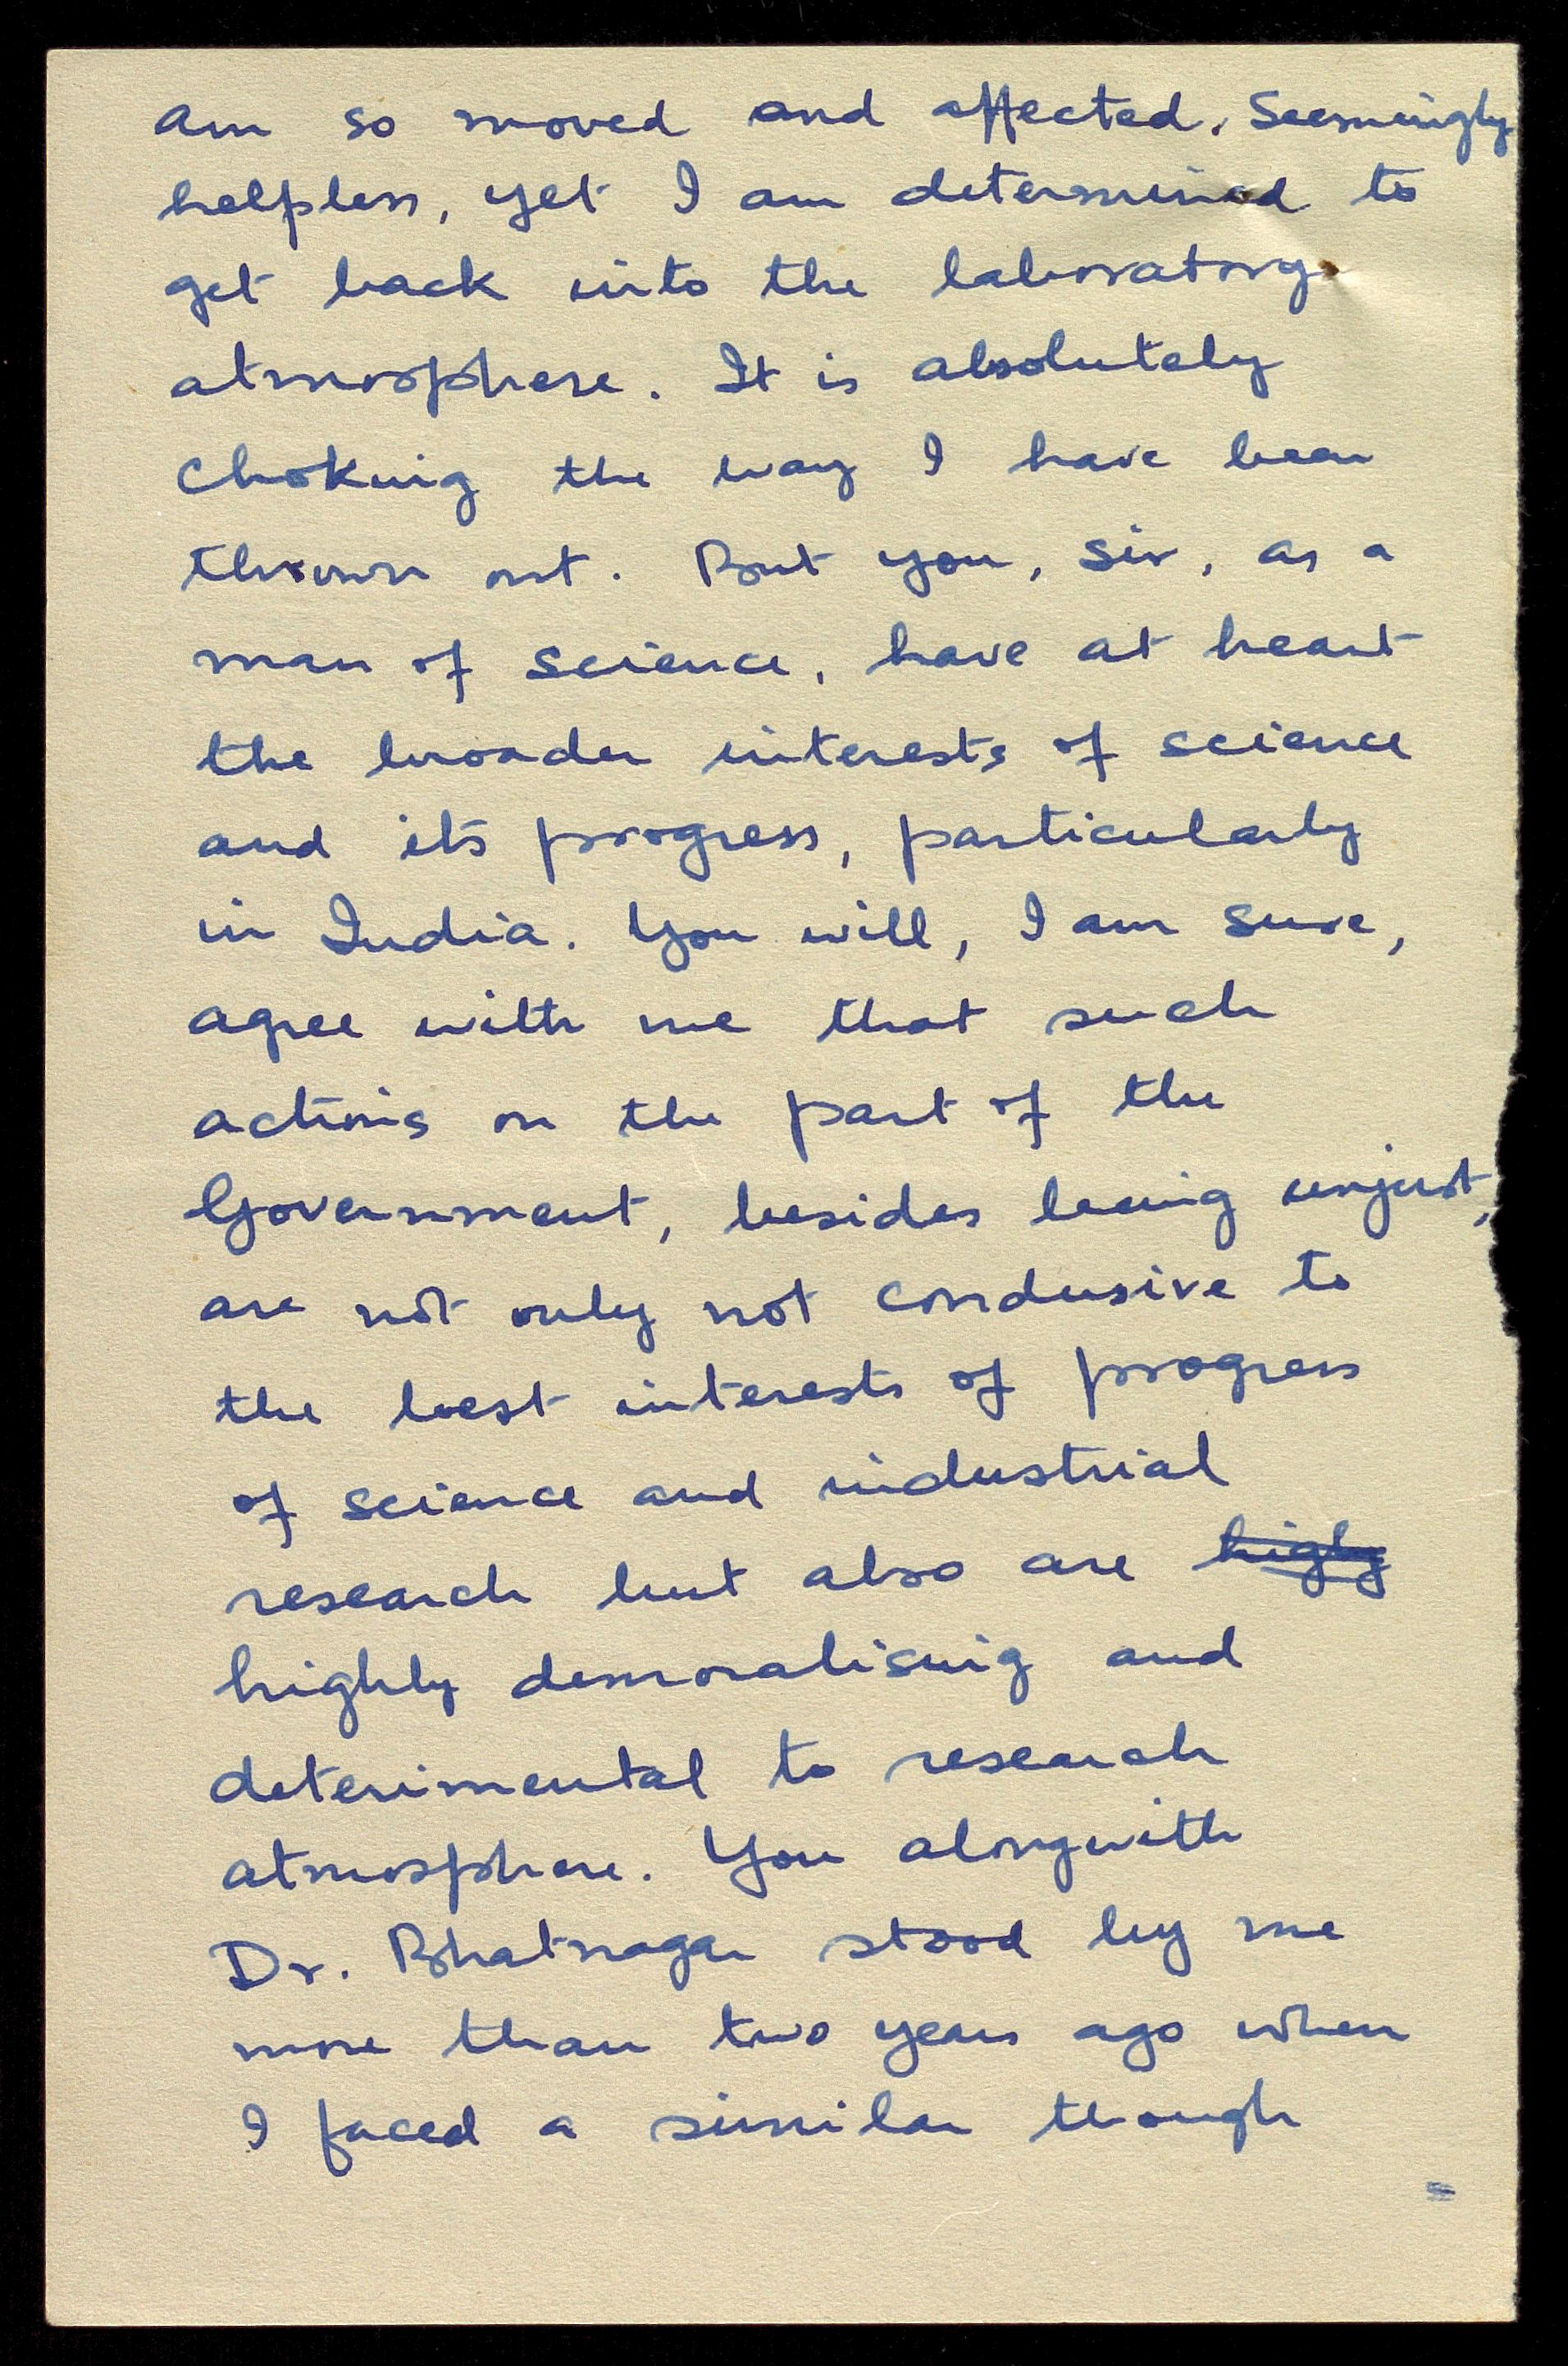 am so moved and affected. Seemingly
helpless, yet I am determined to
get back into the laboratory
atmosphere. It is absolutely
choking the way I have been
thrown out. But you, sir, as a
man of science, have at heart
the broader interests of science
and its progress, particularly
in India. You will, I am sure,
agree with me that such
actions on the part of the
Government, besides being unjust,
are not only not condusive to
the best interests of progress
of science and industrial
research but also are higly
highly demoralising and
deterimental to research
atmosphere. You alongwith
Dr. Bhatnagar stood by me
more than two years ago when
I faced a similar though